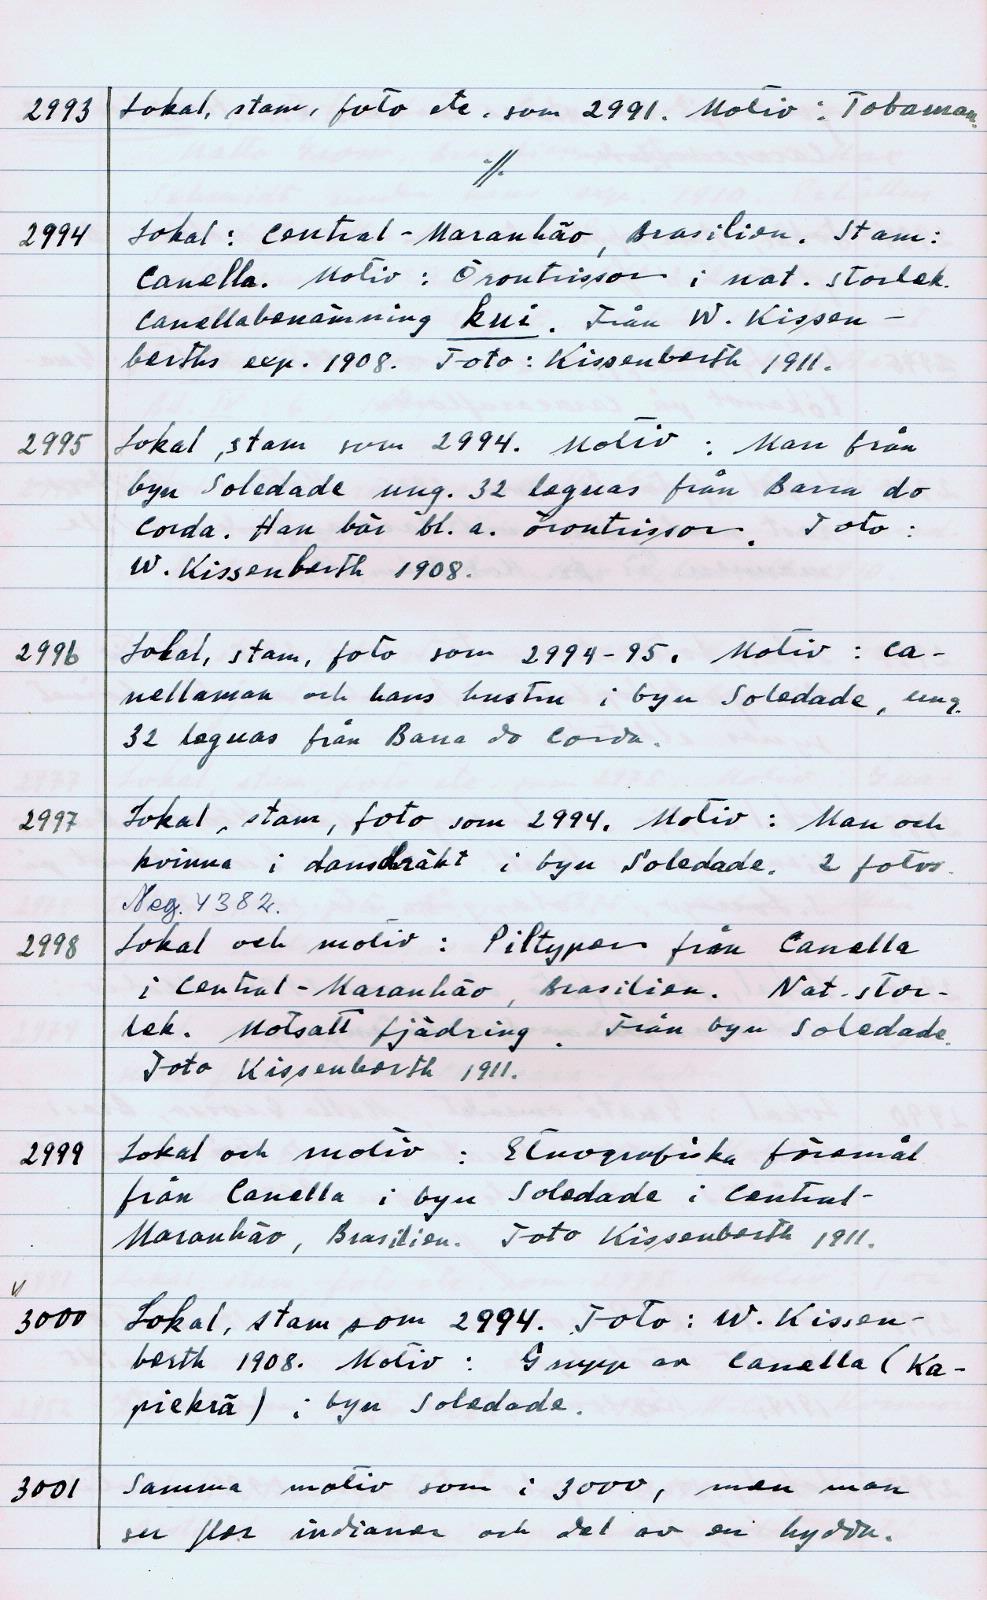 2993 Lokal, stam, foto etc. som 2991. Motiv: Tobaman.
·//·
2994 Lokal: Central-Maranhão, Brasilien. Stam:
Canella. Motiv: Örontrissor i nat. storlek.
Canellabenämning kui. Från W. Kissen-
berths exp. 1908. Foto: Kissenberth 1911.
2995 Lokal, stam som 2994. Motiv: Man från
byn Soledade ung. 32 leguas från Barra do
Corda. Han bär bl. a. örontrissor. Foto:
W. Kissenberth 1908.
2996 Lokal, stam, foto som 2994-95. Motiv: Ca-
nellaman och hans hustru i byn Soledade, ung.
32 leguas från Barra do Corda.
2997 Lokal, stam, foto som 2994. Motiv: Man och
kvinna i dansdräkt i byn Soledade. 2 fotos.
Neg. 4382.
2998 Lokal och motiv: Piltyper från Canella
i Central-Maranhão, Brasilien. Nat. stor-
lek. Motsatt fjädring. Från byn Soledade.
Foto Kissenberth 1911.
2999 Lokal och motiv: Etnografiska föremål
från Canella i byn Soledade i Central-
Maranhão, Brasilien. Foto Kissenberth 1911.
3000 Lokal, stam som 2994. Foto: W. Kissen-
berth 1908. Motiv: Grupp av Canella (Ka-
piekrã) i byn Soledade.
3001 Samma motiv som i 3000, men man
ser fler indianer och del av en hydda.